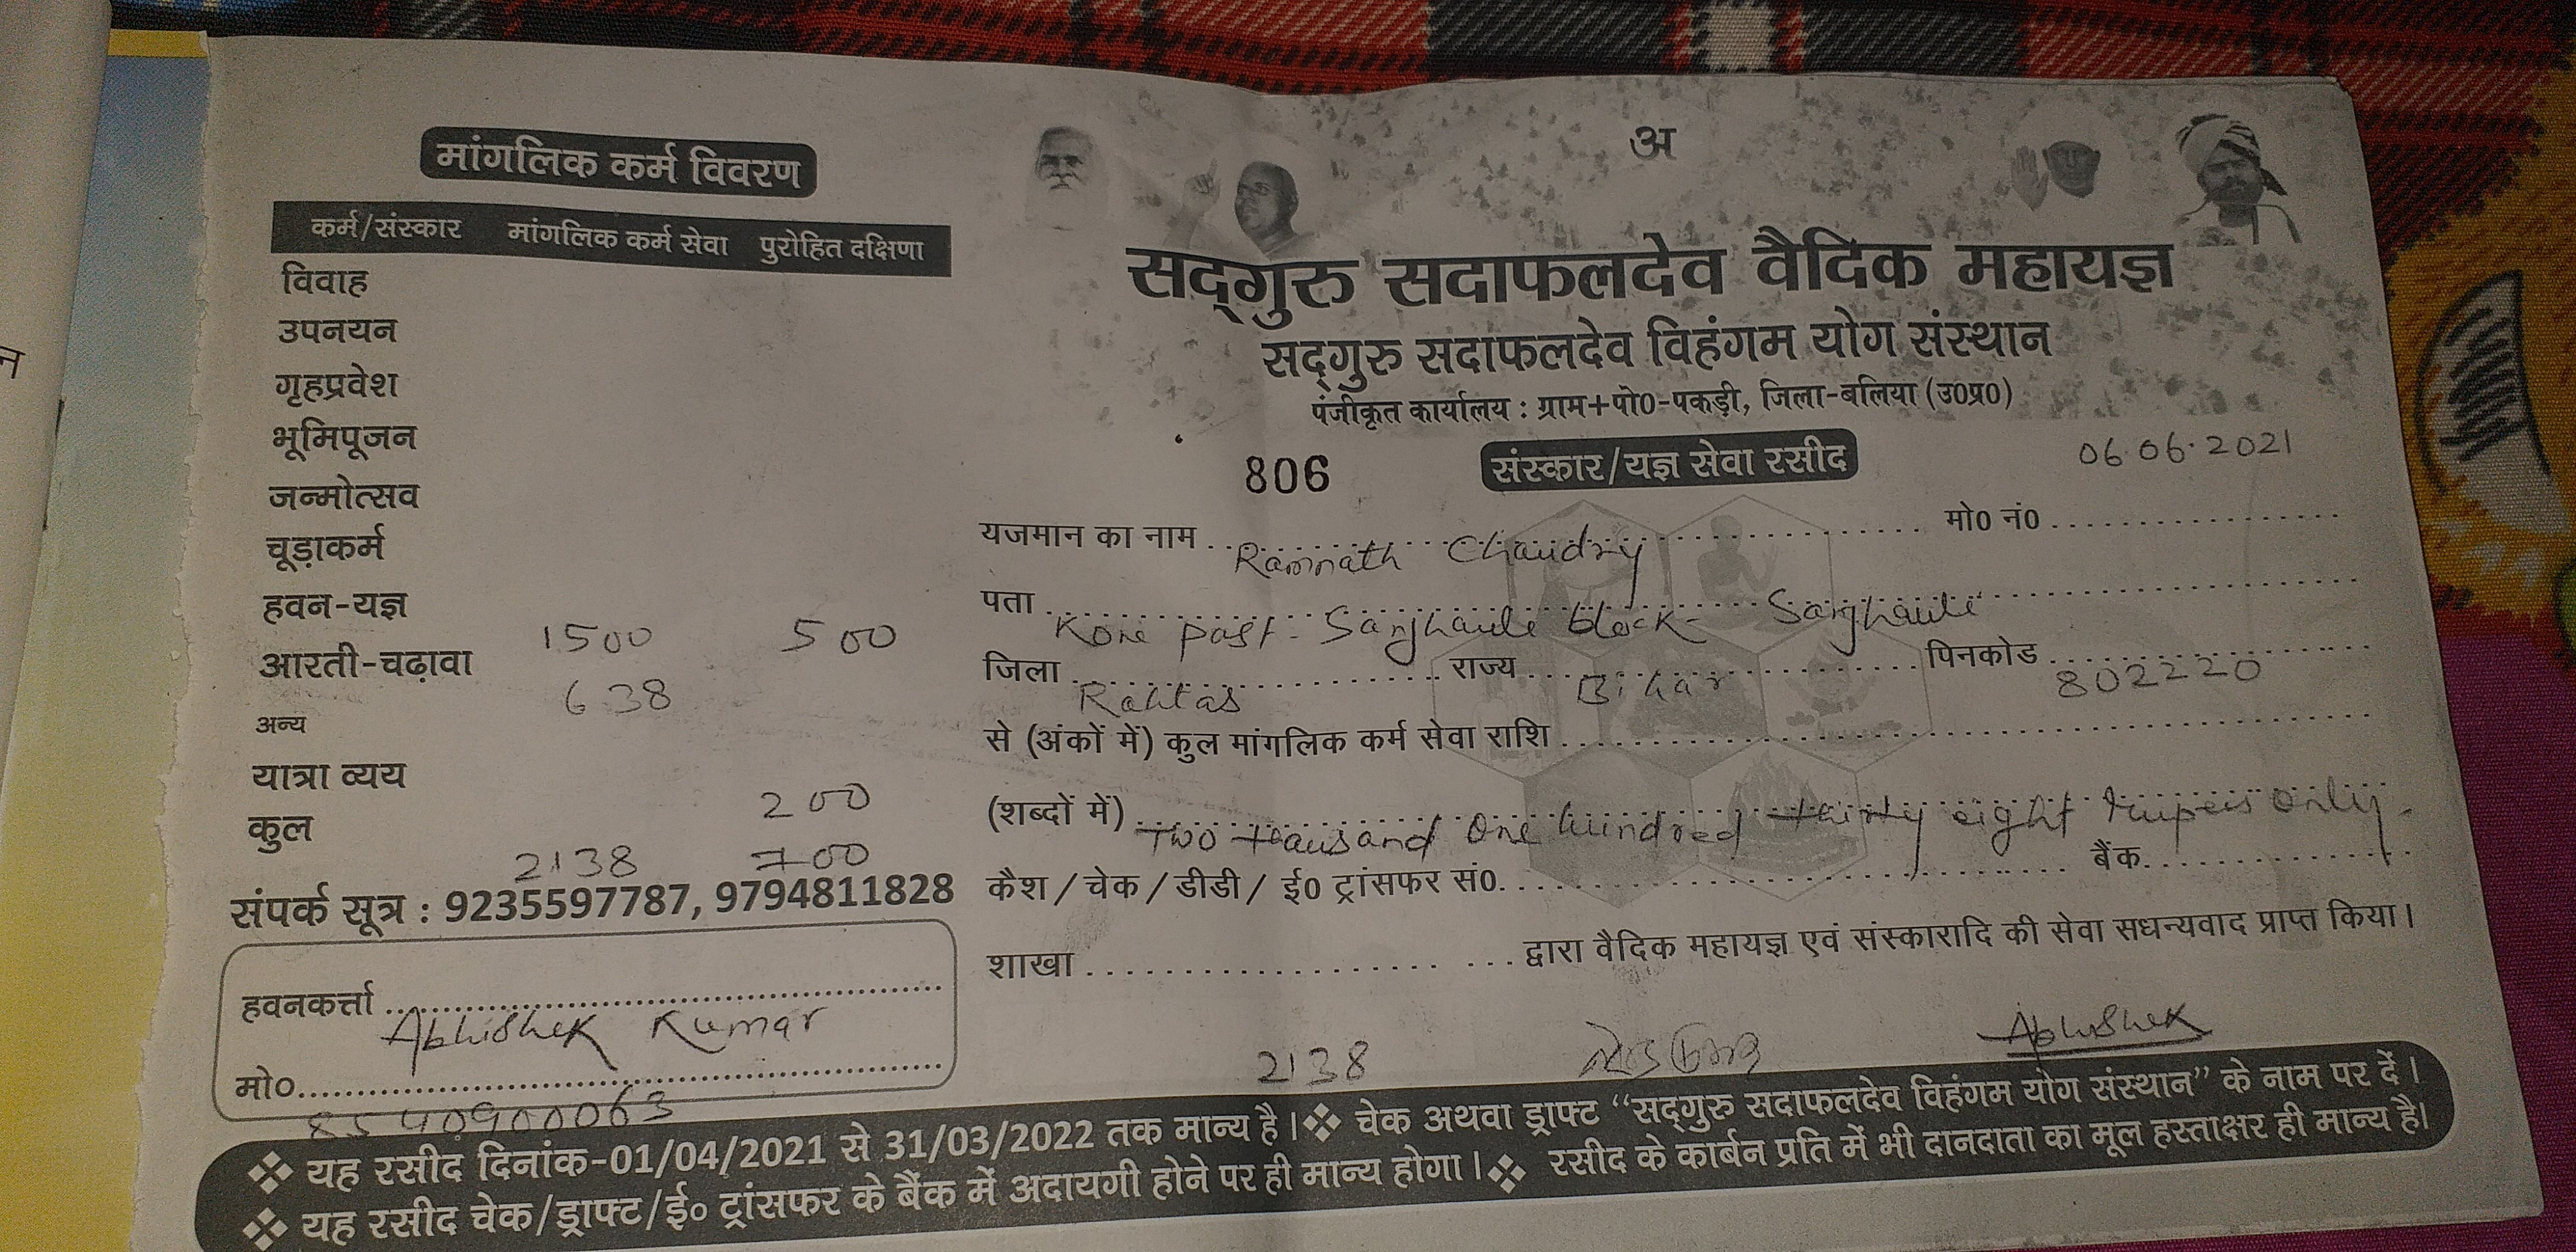 न
मांगलिक कर्म विवरण
कर्म/संस्कार मांगलिक कर्म सेवा पुरोहित दक्षिणा
विवाह
उपनयन
गृहप्रवेश
भूमिपूजन
जन्मोत्सव
चूड़ाकर्म
हवन-यज्ञ
1500 500
आरती-चढ़ावा
638
अन्य
यात्रा व्यय
200
कुल
2138 700
संपर्क सूत्र : 9235597787, 9794811828
हवनकर्त्ता
Abhishek Kumar
मो०
8540900063
अ
सद्‌गुरु सदाफलदेव वैदिक महायज्ञ
सद्‌गुरु सदाफलदेव विहंगम योग संस्थान
पंजीकृत कार्यालय : ग्राम+पो0-पकड़ी, जिला-बलिया (उ0प्र0)
806 संस्कार/यज्ञ सेवा रसीद 06.06.2021
यजमान का नाम मो0 नं0
Ramnath Chaudry
पता
Kone post- Sanjhauli block- Sanjhauli
जिला राज्य पिनकोड
Rohtas Bihar 802220
से (अंकों में) कुल मांगलिक कर्म सेवा राशि
(शब्दों में)
Two thausand One hundred thirty eight rupeis only.
कैश / चेक / डीडी / ई0 ट्रांसफर सं0. बैंक
शाखा द्वारा वैदिक महायज्ञ एवं संस्कारादि की सेवा सधन्यवाद प्राप्त किया।
2138 Abhishek
❖ यह रसीद दिनांक-01/04/2021 से 31/03/2022 तक मान्य है। ❖ चेक अथवा ड्राफ्ट “सद्‌गुरु सदाफलदेव विहंगम योग संस्थान” के नाम पर दें।
❖ यह रसीद चेक/ड्राफ्ट/ई० ट्रांसफर के बैंक में अदायगी होने पर ही मान्य होगा। ❖ रसीद के कार्बन प्रति में भी दानदाता का मूल हस्ताक्षर ही मान्य है।